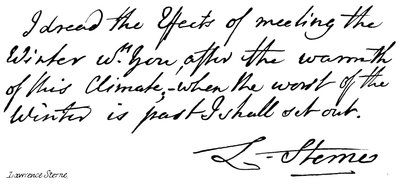 I dread the Effects of meeting the
Winter wth You, after the warmth
of this Climate,–when the worst of the
Winter is past I shall set out.
L–Sterne
Lawrence Sterne.